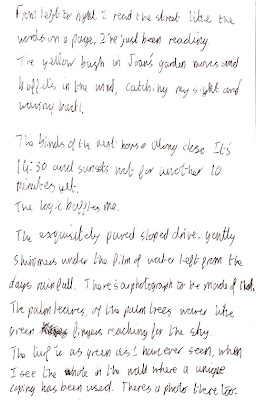 From left to right I read the street like the
words on a page, I've just been reading.
The yellow bush in Joan's garden moves and
buffets in the wind, catching my sight and
waving back.
The blinds of the next house along close It's
14:30 and sunsets not for another 10
minutes yet.
The logic baffles me.
The exquisitely paved sloped drive. gently
shimmers under the film of water left from the
days rainfall. There's a photograph to be made of that.
The palm leaves, of the palm trees waver like
green fingers reaching for the sky.
The turf is as green as I have ever seen, when
I see the whole in the wall where a unique
coping has been used. There's a photo there too.